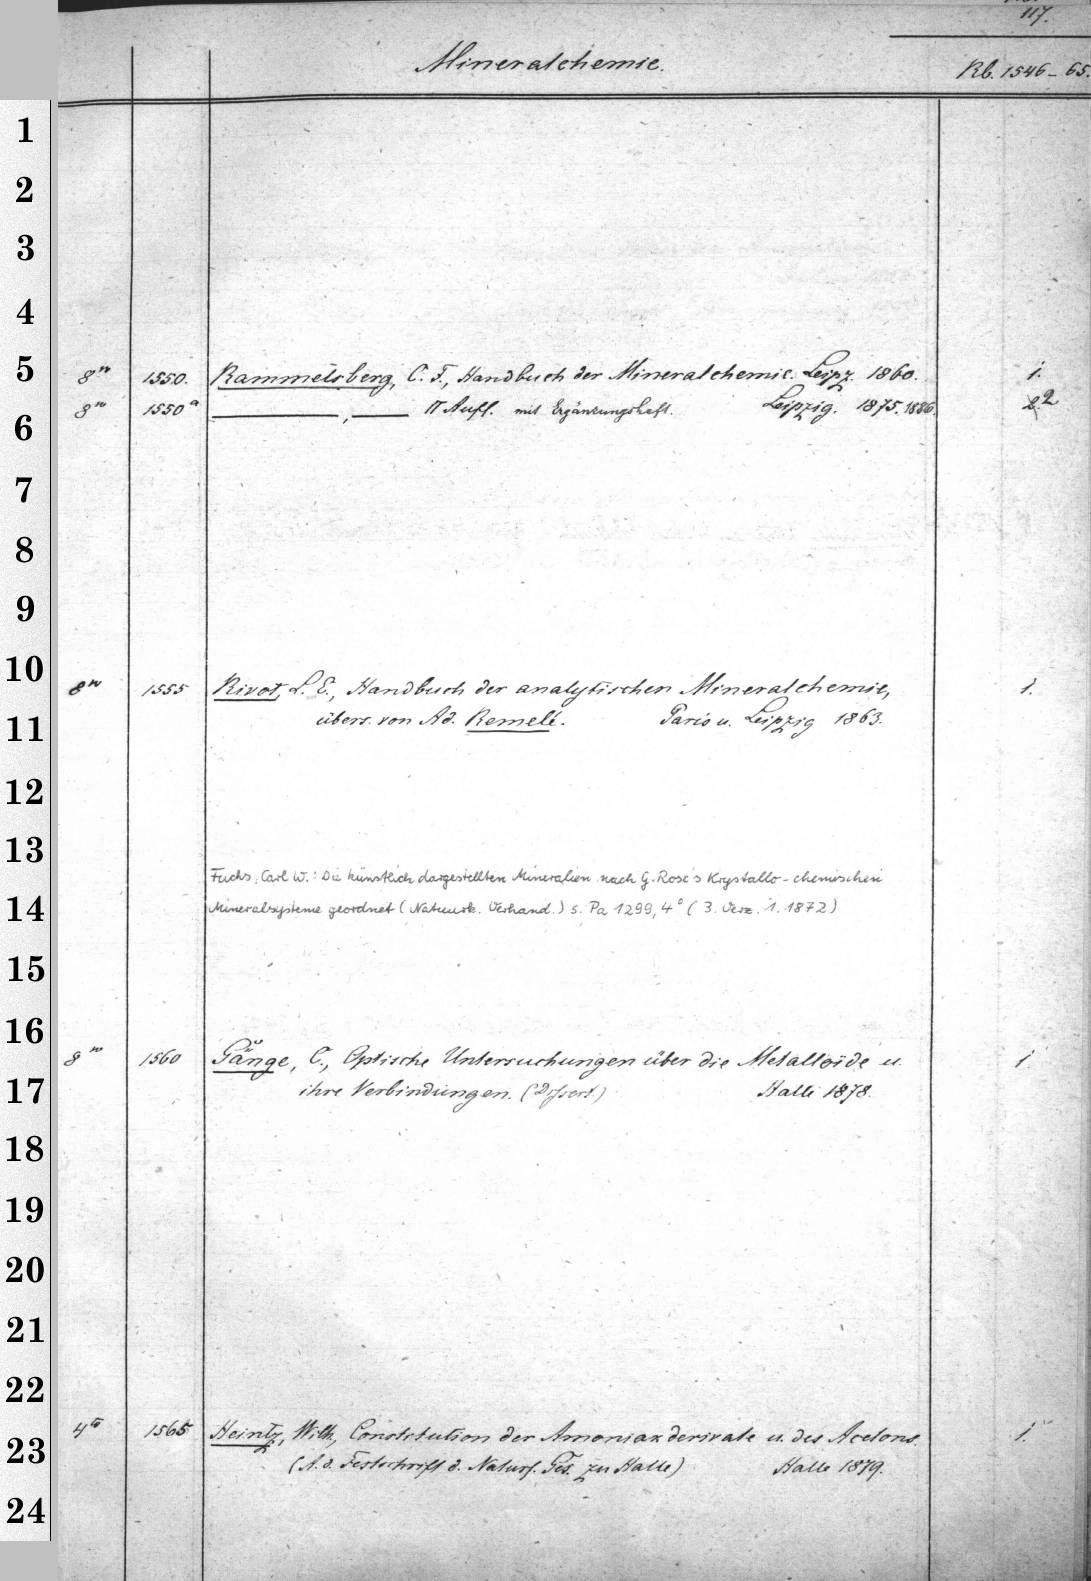 117.
Mineralchemie.
Rb. 1546-65.
1
2
3
4
5
8vo 1550. Rammelsberg, C. F., Handbuch der Mineralchemie. Leipz. 1860. 1.
8vo 1550a ———, —— II Aufl. mit Ergänzungsheft. Leipzig. 1875. 1886. 2. 2
6
7
8
9
10
8vo 1555 Rivot, L. E., Handbuch der analytischen Mineralchemie, 1.
übers. von Ad. Remelé. Paris u. Leipzig 1863.
11
12
13
Fuchs, Carl W.: Die künstlich dargestellten Mineralien nach G. Rose's Krystallo-chemischen
14
Mineralsysteme geordnet (Natuurk. Verhand.) s. Pa 1299, 4° (3. Verz. 1. 1872)
15
16
8vo 1560 Gänge, C., Optische Untersuchungen über die Metalloïde u. 1
17
ihre Verbindungen. (Dissert.) Halle 1878.
18
19
20
21
22
4to 1565 Heintz, Wilh., Constitution der Amoniakderivate u. des Acetons. 1.
23
(A. d. Festschrift d. Naturf. Ges. zu Halle) Halle 1879.
24